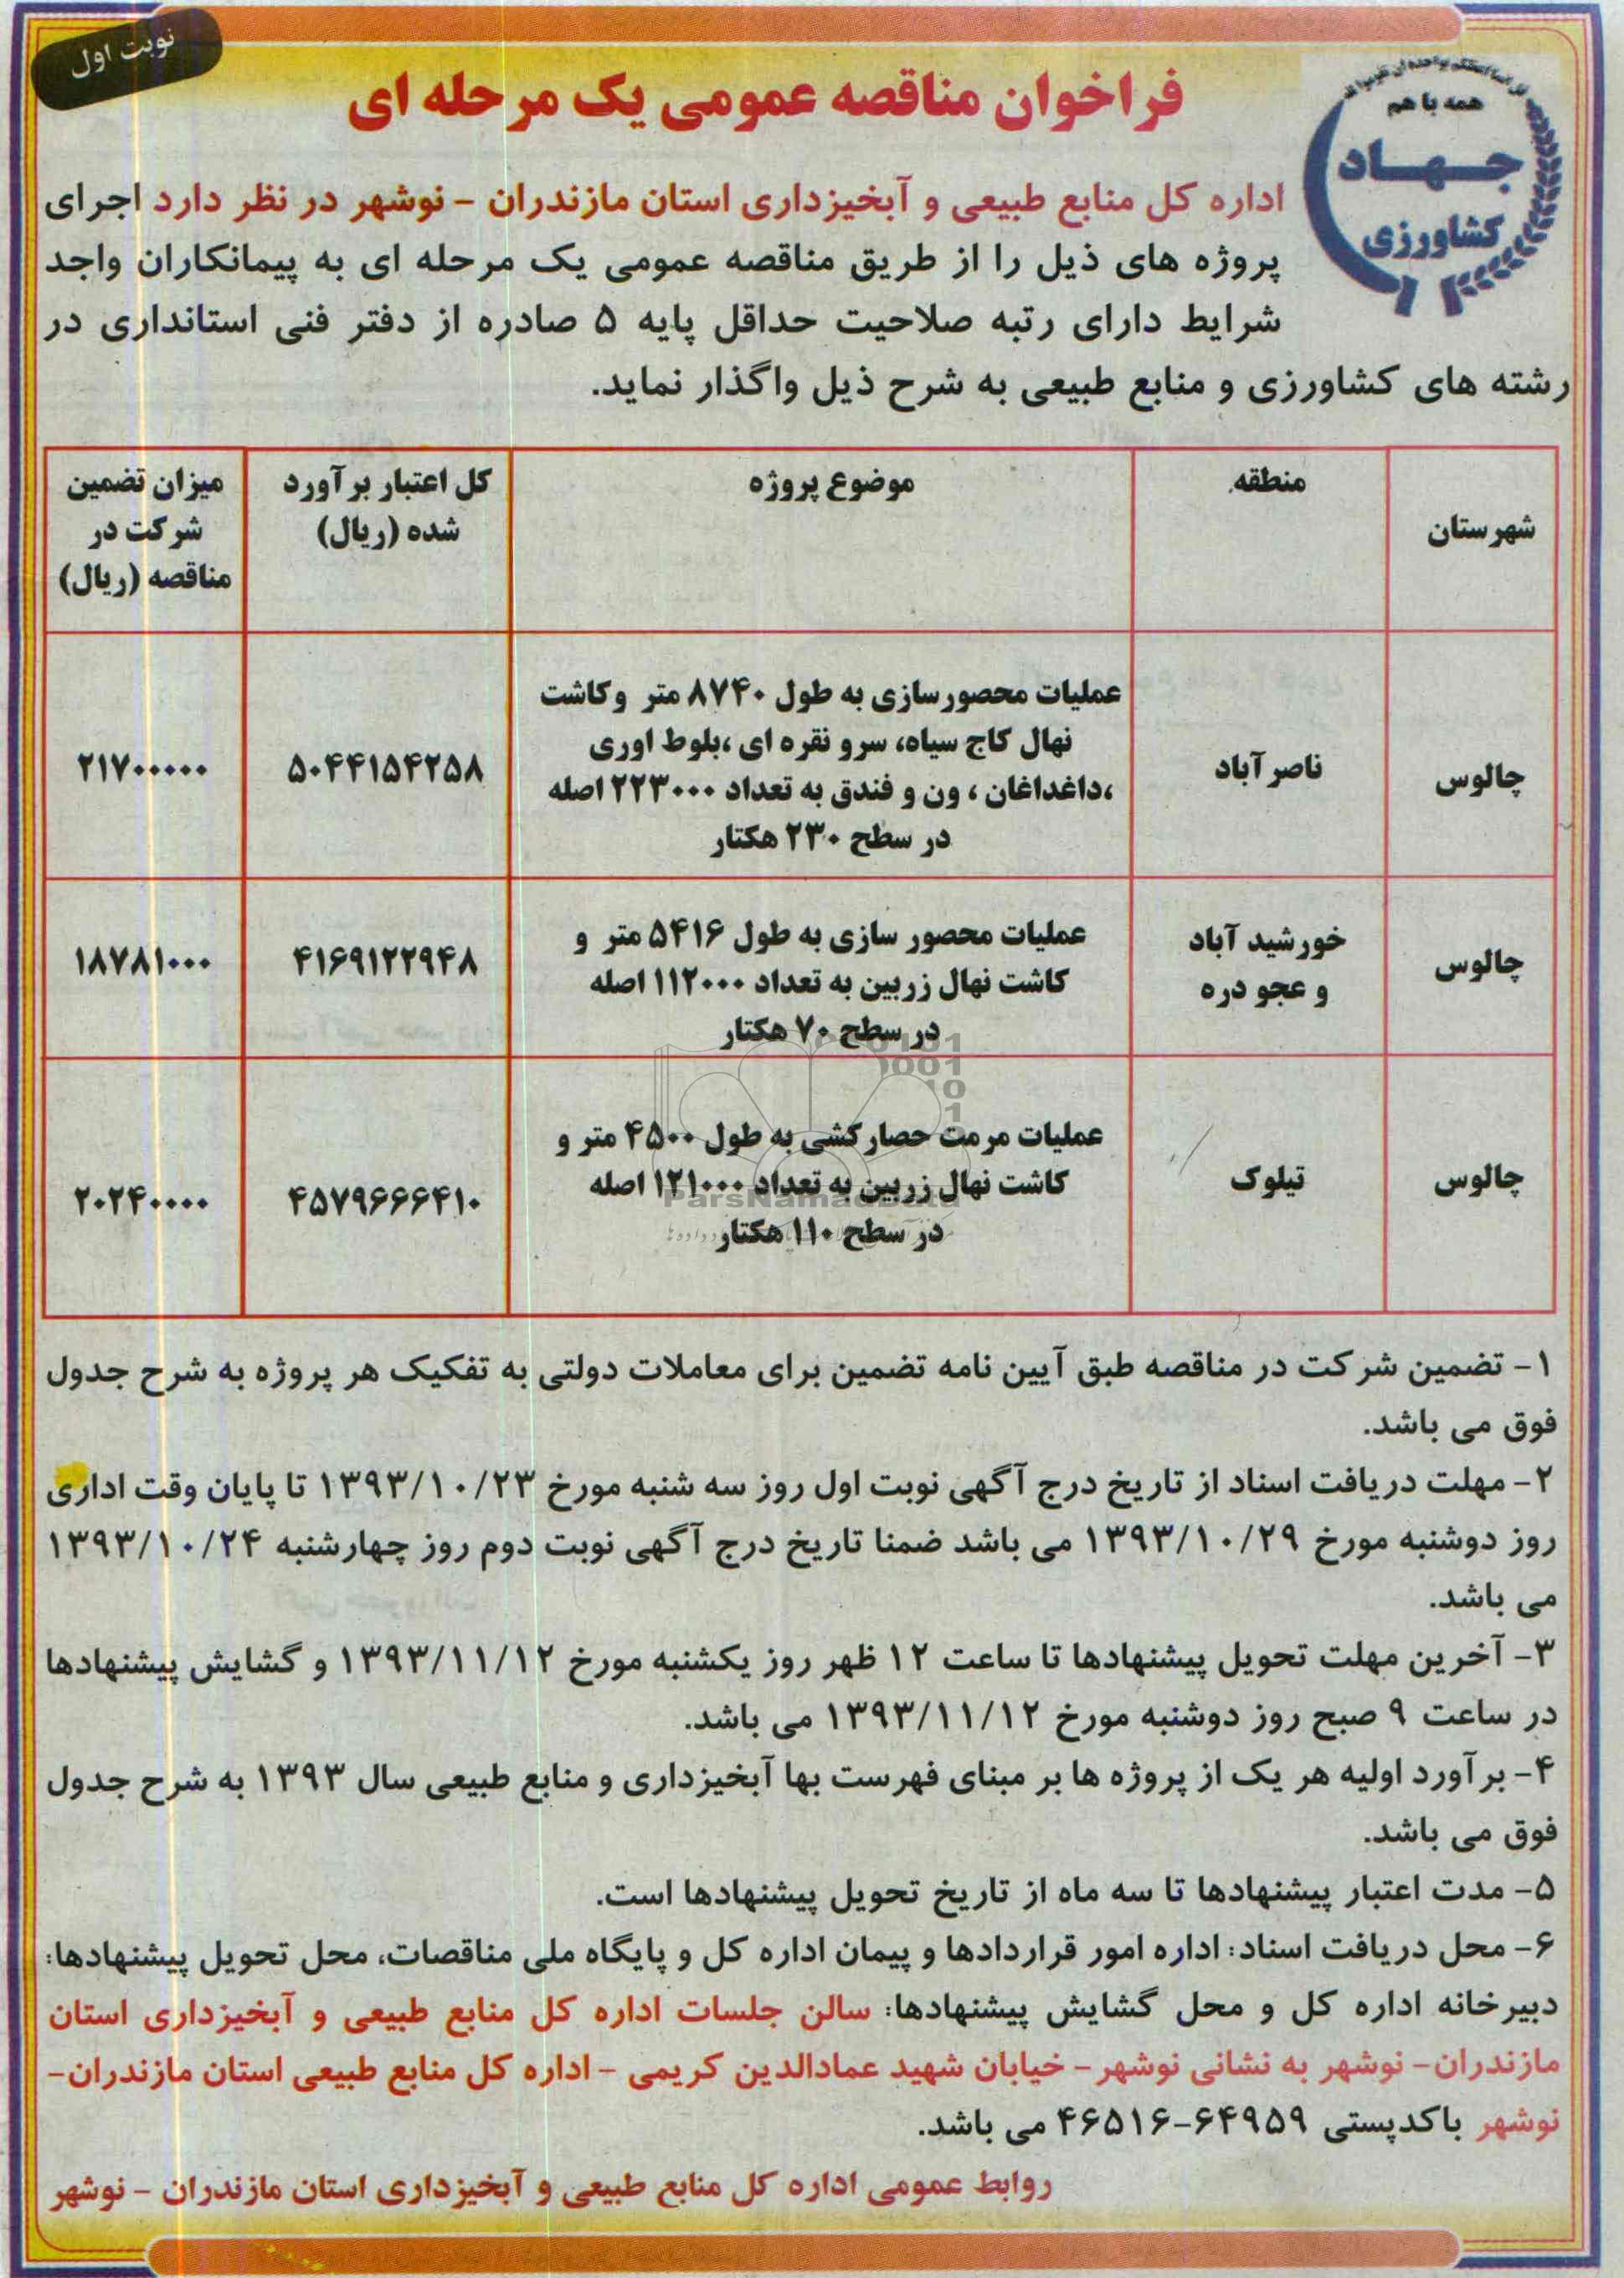 نوبت اول
فراخوان مناقصه عمومی یک مرحله ای
همه با هم
جهاد
کشاورزی
اداره کل منابع طبیعی و آبخیزداری استان مازندران - نوشهر در نظر دارد اجرای
پروژه های ذیل را از طریق مناقصه عمومی یک مرحله ای به پیمانکاران واجد
شرایط دارای رتبه صلاحیت حداقل پایه ۵ صادره از دفتر فنی استانداری در
رشته های کشاورزی و منابع طبیعی به شرح ذیل واگذار نماید.
شهرستان
منطقه
موضوع پروژه
کل اعتبار برآورد
شده (ریال)
میزان تضمین
شرکت در
مناقصه (ریال)
چالوس
ناصرآباد
عملیات محصورسازی به طول ۸۷۴۰ متر وکاشت
نهال کاج سیاه، سرو نقره ای ،بلوط اوری
،داغداغان ، ون و فندق به تعداد ۲۲۳۰۰۰ اصله
در سطح ۲۳۰ هکتار
۵۰۴۴۱۵۴۲۵۸
۲۱۷۰۰۰۰۰
چالوس
خورشید آباد
و عجو دره
عملیات محصور سازی به طول ۵۴۱۶ متر و
کاشت نهال زربین به تعداد ۱۱۲۰۰۰ اصله
در سطح ۷۰ هکتار
۴۱۶۹۱۲۲۹۴۸
۱۸۷۸۱۰۰۰
چالوس
تیلوک
عملیات مرمت حصارکشی به طول ۴۵۰۰ متر و
کاشت نهال زربین به تعداد ۱۲۱۰۰۰ اصله
در سطح ۱۱۰ هکتار
۴۵۷۹۶۶۶۴۱۰
۲۰۲۴۰۰۰۰
ParsNamadData
۱- تضمین شرکت در مناقصه طبق آیین نامه تضمین برای معاملات دولتی به تفکیک هر پروژه به شرح جدول
فوق می باشد.
۲- مهلت دریافت اسناد از تاریخ درج آگهی نوبت اول روز سه شنبه مورخ ۱۳۹۳/۱۰/۲۳ تا پایان وقت اداری
روز دوشنبه مورخ ۱۳۹۳/۱۰/۲۹ می باشد ضمنا تاریخ درج آگهی نوبت دوم روز چهارشنبه ۱۳۹۳/۱۰/۲۴
می باشد.
۳- آخرین مهلت تحویل پیشنهادها تا ساعت ۱۲ ظهر روز یکشنبه مورخ ۱۳۹۳/۱۱/۱۲ و گشایش پیشنهادها
در ساعت ۹ صبح روز دوشنبه مورخ ۱۳۹۳/۱۱/۱۲ می باشد.
۴- برآورد اولیه هر یک از پروژه ها بر مبنای فهرست بها آبخیزداری و منابع طبیعی سال ۱۳۹۳ به شرح جدول
فوق می باشد.
۵- مدت اعتبار پیشنهادها تا سه ماه از تاریخ تحویل پیشنهادها است.
۶- محل دریافت اسناد: اداره امور قراردادها و پیمان اداره کل و پایگاه ملی مناقصات، محل تحویل پیشنهادها:
دبیرخانه اداره کل و محل گشایش پیشنهادها: سالن جلسات اداره کل منابع طبیعی و آبخیزداری استان
مازندران- نوشهر به نشانی نوشهر- خیابان شهید عمادالدین کریمی - اداره کل منابع طبیعی استان مازندران-
نوشهر باکدپستی ۶۴۹۵۹-۴۶۵۱۶ می باشد.
روابط عمومی اداره کل منابع طبیعی و آبخیزداری استان مازندران - نوشهر